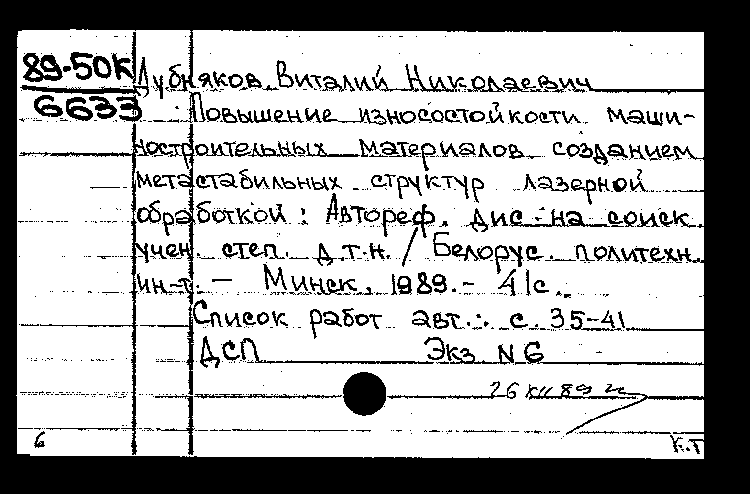 89-50К Дубняков Виталий Николаевич
6633 Повышение износостойкости маши-
ностроительных материалов созданием
метастабильных структур лазерной
обработкой: Автореф. дис. на соиск.
учен. степ. д.т.н. / Белорус. политехн.
ин-т. - Минск, 1989. - 41с.
Список работ авт.: с. 35-41
ДСП Экз N 6
26 XII 89 г
6 К.Т